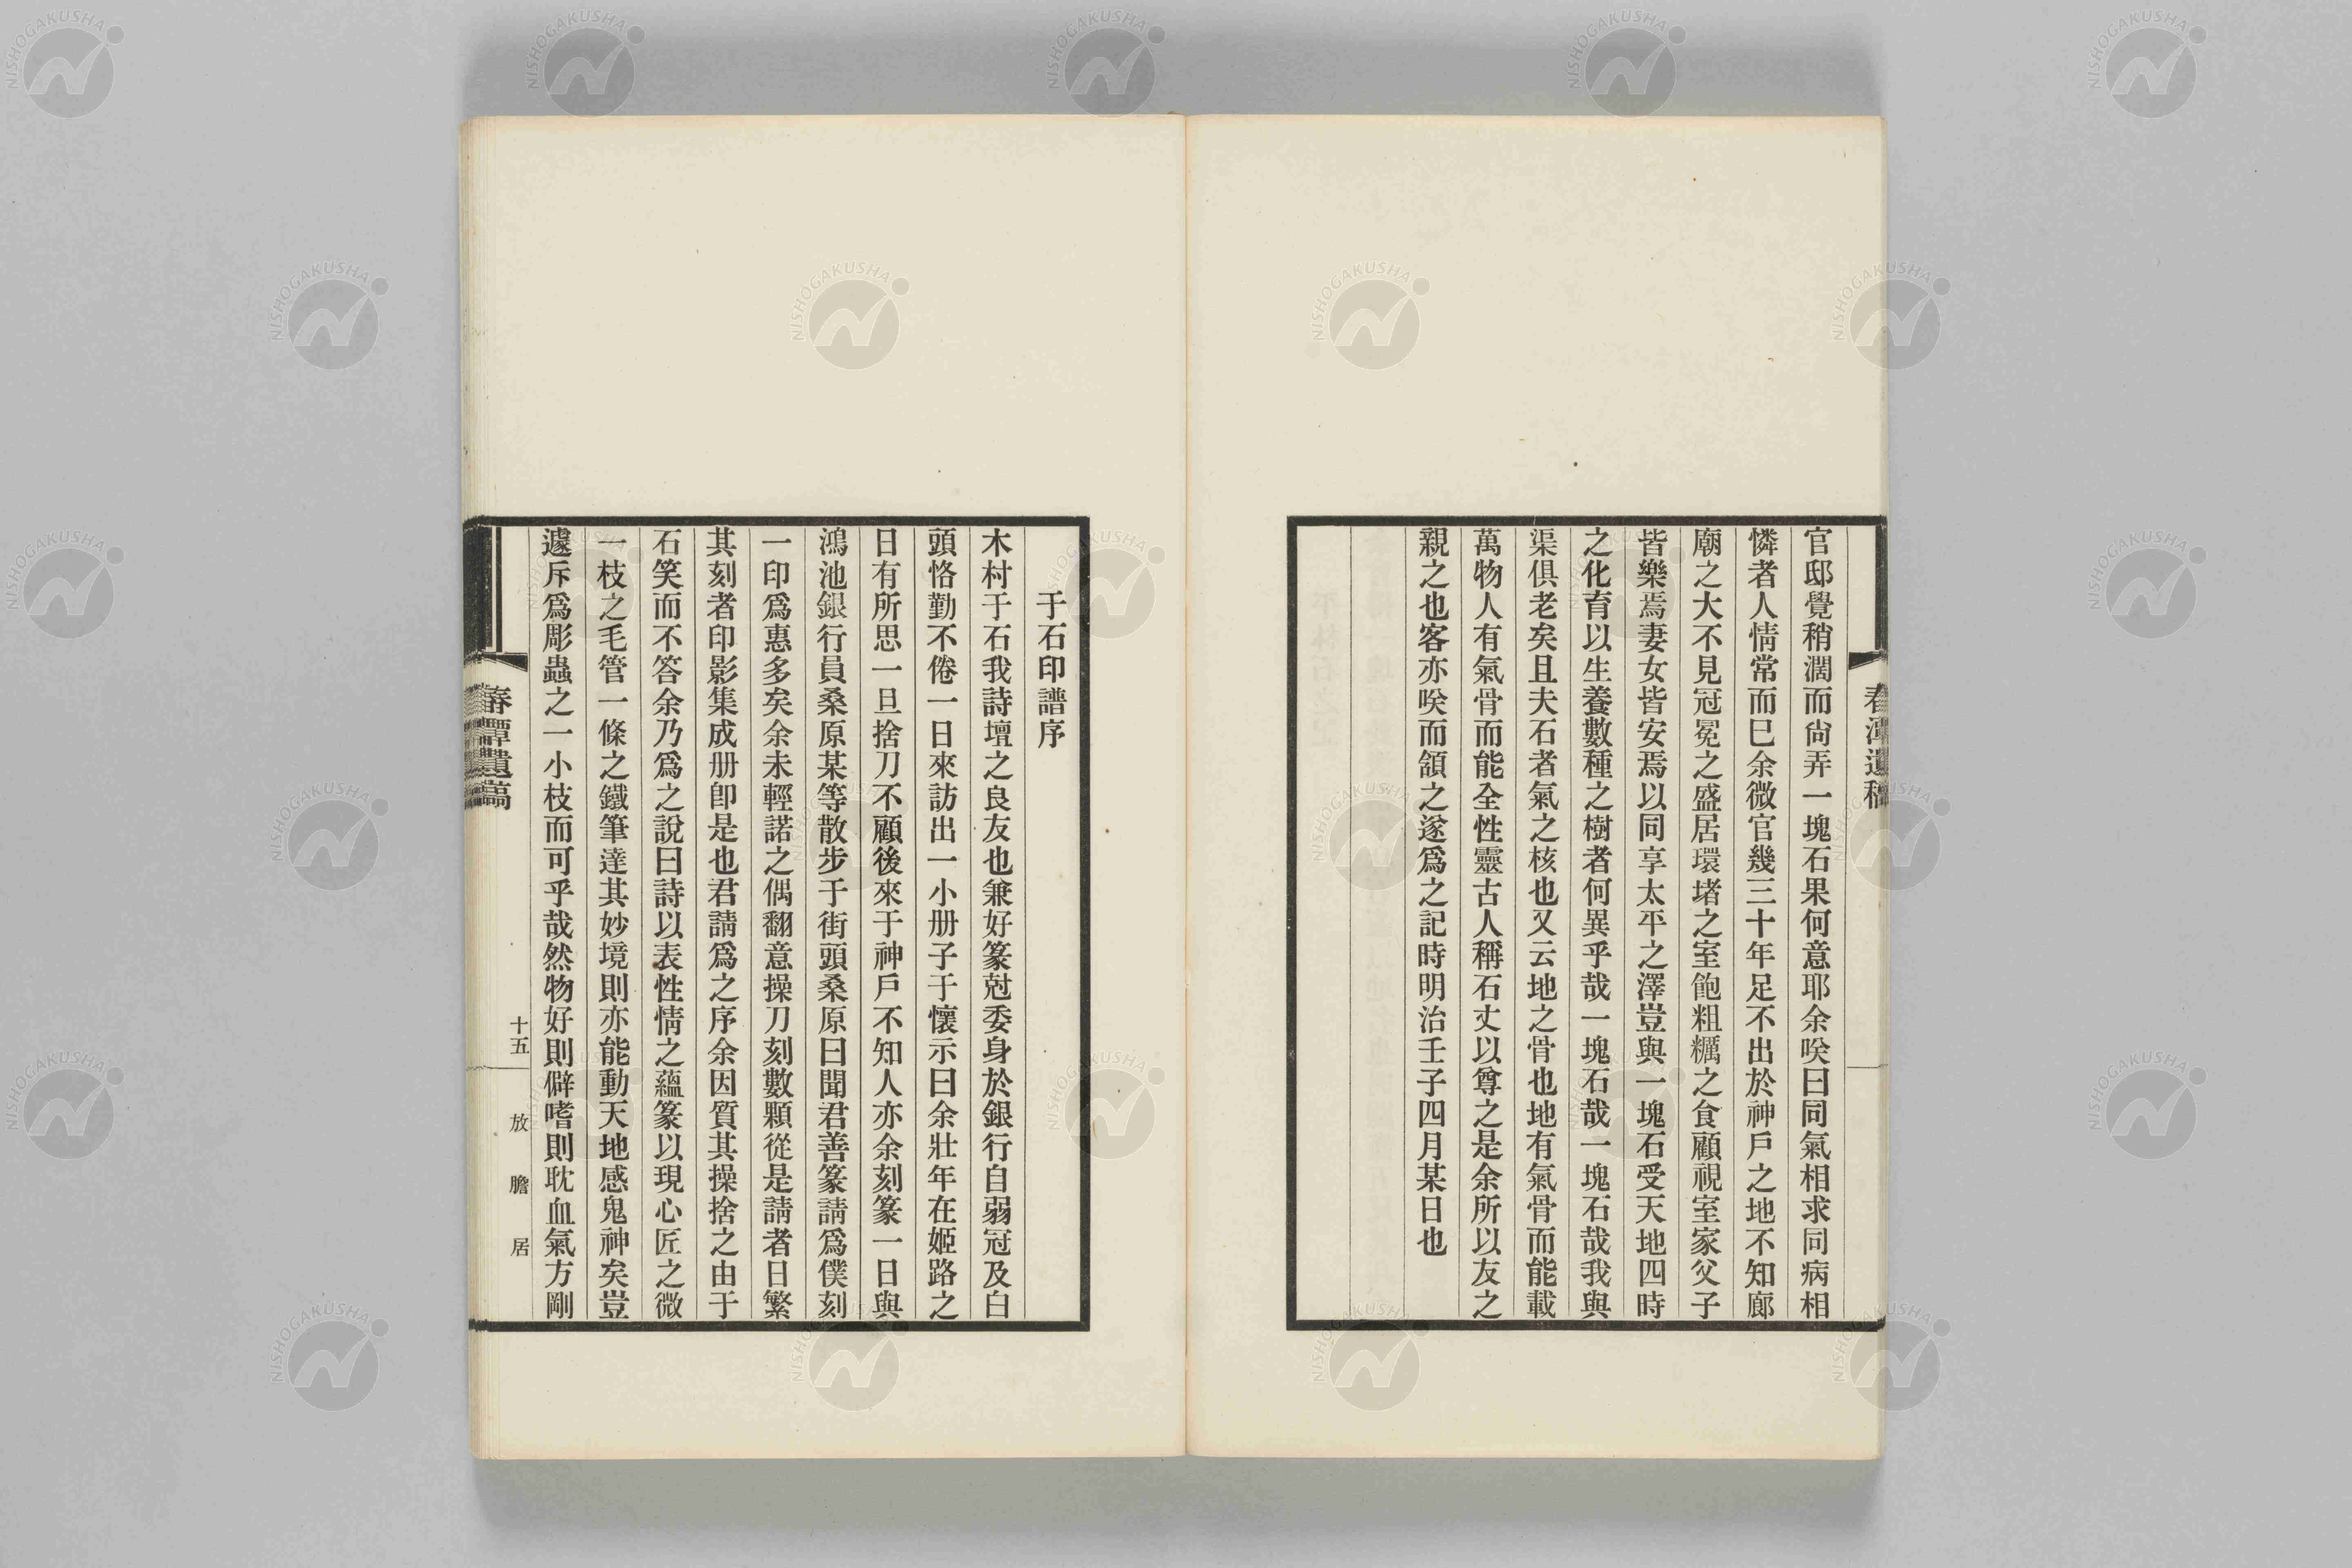 春潭遺稿
官邸覺稍濶而尙弄一塊石果何意耶余咲曰同氣相求同病相
憐者人情常而已余微官幾三十年足不出於神戶之地不知廊
廟之大不見冠冕之盛居環堵之室飽粗糲之食顧視室家父子
皆樂焉妻女皆安焉以同享太平之澤豈與一塊石受天地四時
之化育以生養數種之樹者何異乎哉一塊石哉一塊石哉我與
渠俱老矣且夫石者氣之核也又云地之骨也地有氣骨而能載
萬物人有氣骨而能全性靈古人稱石丈以尊之是余所以友之
親之也客亦咲而頷之遂爲之記時明治壬子四月某日也
于石印譜序
木村于石我詩壇之良友也兼好篆尅委身於銀行自弱冠及白
頭恪勤不倦一日來訪出一小册子于懷示曰余壯年在姬路之
日有所思一旦捨刀不顧後來于神戶不知人亦余刻篆一日與
鴻池銀行員桑原某等散步于街頭桑原曰聞君善篆請爲僕刻
一印爲惠多矣余未輕諾之偶翻意操刀刻數顆從是請者日繁
其刻者印影集成册卽是也君請爲之序余因質其操捨之由于
石笑而不答余乃爲之說曰詩以表性情之蘊篆以現心匠之微
一枝之毛管一條之鐵筆達其妙境則亦能動天地感鬼神矣豈
遽斥爲彫蟲之一小枝而可乎哉然物好則僻嗜則耽血氣方剛
春潭遺稿
十五
放膽居
NISHOGAKUSHA